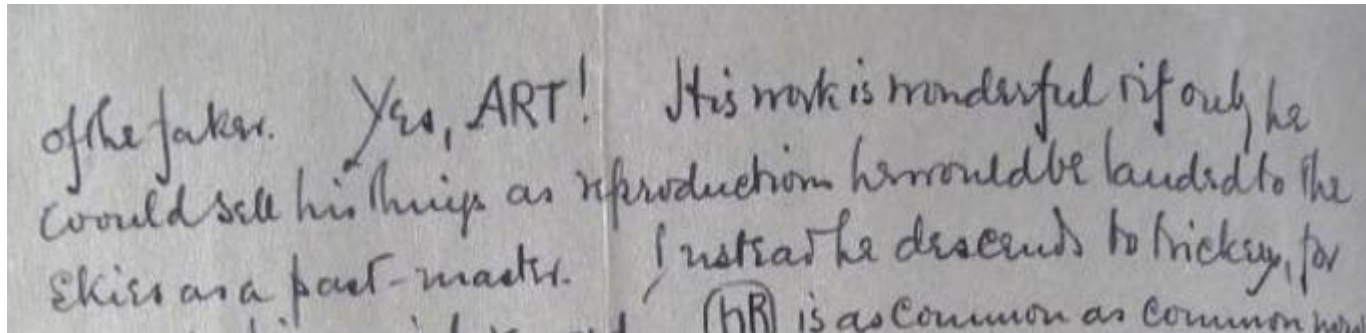 of the faker. Yes, ART! His work is wonderful & if only he
would sell his things as reproductions he would be lauded to the
skies as a past-master. Instead he descends to trickery, for
(hR) is as common as common